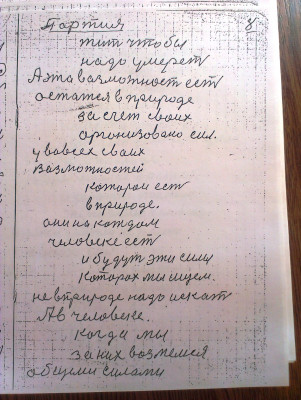 Партия
8
жит что бы
надо умерет
А эта возможност ест
остатся в природе
за счет своих
организовано сил.
у во всех своих
Возможностей
которои ест
в природе.
они на каждом
человеке ест
и будут эти сили
которах мы ищем.
не в природе надо искат
А в человеке.
когда мы
за них возмемся
общими силами